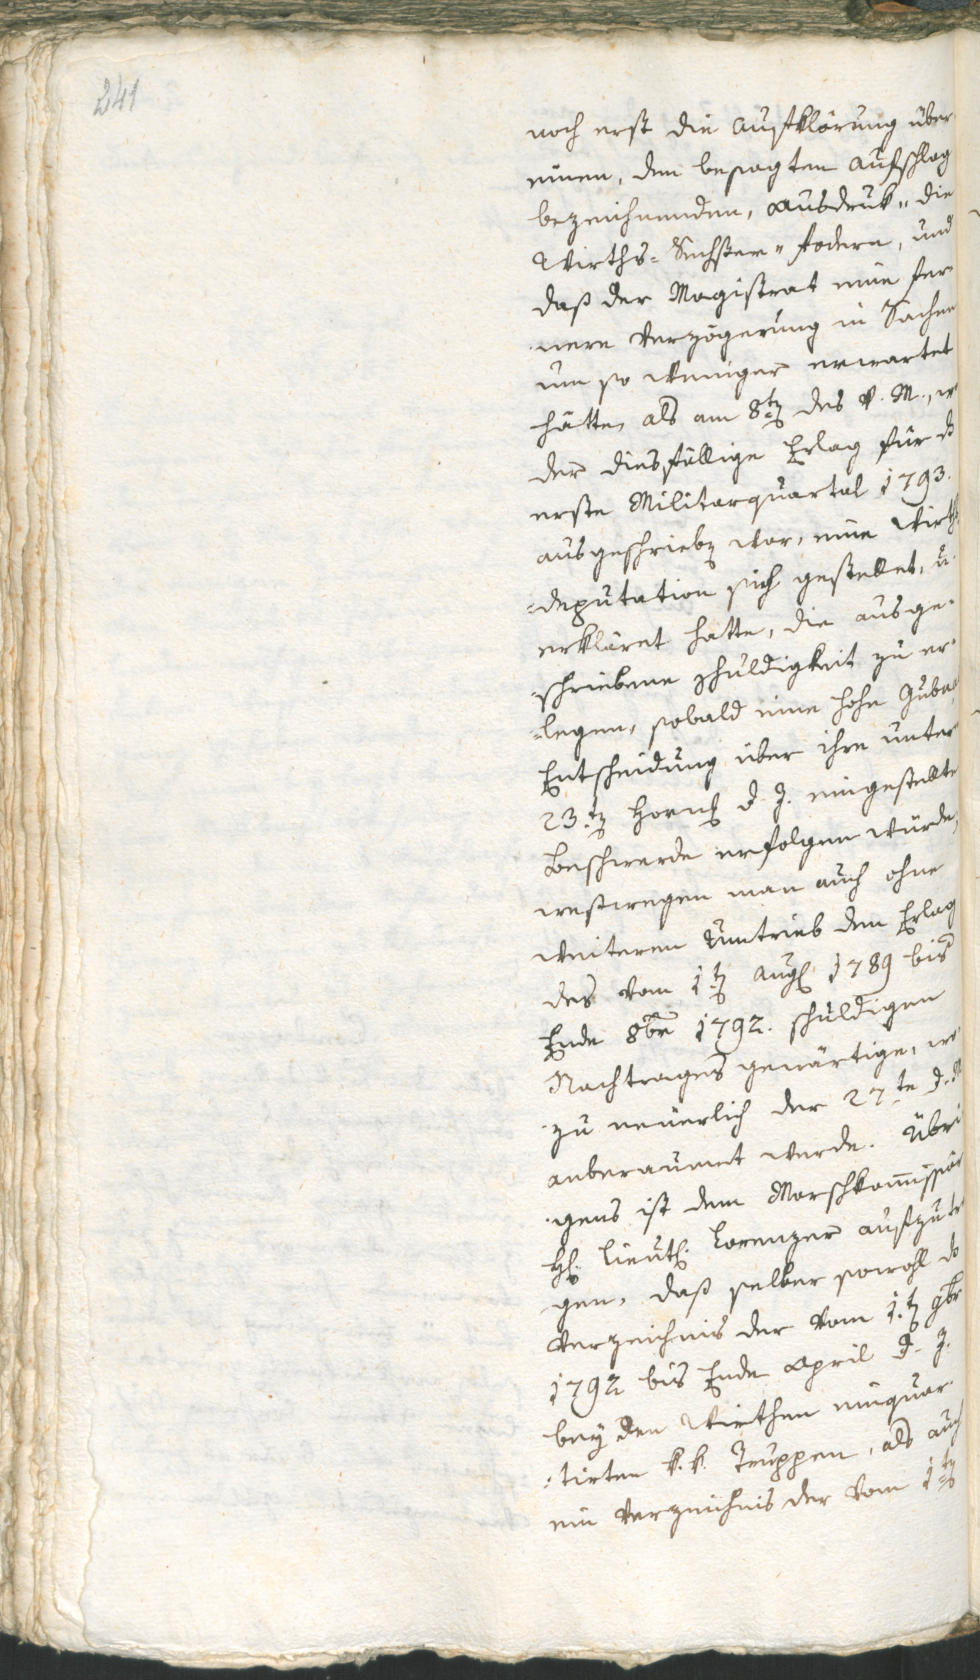 241
noch erst die Aufklärung über
einen, den besagten Aufschlag
bezeichnenden, Ausdruk „ die
Wirths-Sechster " fodere, und
daß der Magistrat eine fer-
-nere Verzögerung in Sachen
um so weniger erwartet
hätte, als am 8ten des v. M., wo
der diesfällige Erlag für d
erste Militarquartal 1793.
ausgeschrieben war, eine Wirths
-deputation sich gestellet, u.
erkläret hatte, die ausge-
-schriebene Schuldigkeit zu er-
-legen, sobald eine hohe Gubal
Entscheidung über ihre unter
23.ten Horn. d. J. eingestellte
Beschwerde erfolgen würde,
weßwegen man auch ohne
weiteren Umtrieb den Erlag
des vom 1ten Aug. 1789 bis
Ende 8br 1792. schuldigen
Nachtrages gewärtige, wo-
-zu neuerlich der 27te d. M
anberaumt werde. Übri-
-gens ist dem Marschkommissär
H. Lieut. Lorenzer aufzutra
gen, daß selber sowohl d
Verzeichnis der vom 1.ten 9br
1792 bis Ende April d. J.
bey den Wirthen einquar-
-tirten k. k. Truppen, als auch
ein Verzeichnis der vom 1ten